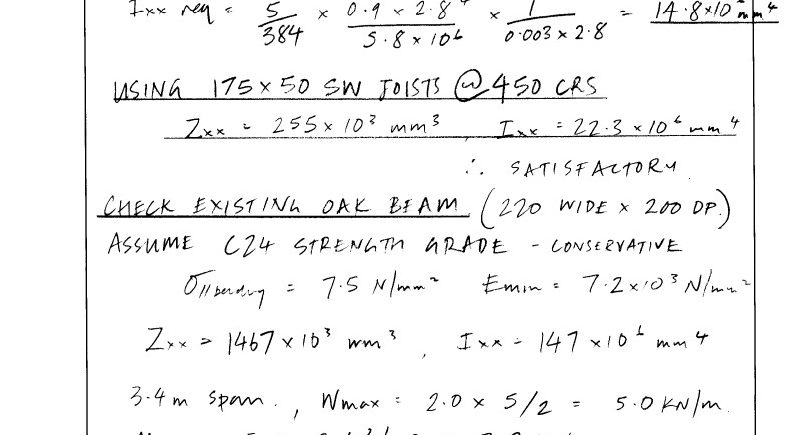 Ixx req = 5/384 × 0.9 × 2.8⁴/5.8 × 10⁶ × 1/0.003 × 2.8 = 14.8×10 mm⁴
USING 175 × 50 SW JOISTS @ 450 CRS
Zxx = 255 × 10³ mm³, Ixx = 22.3 × 10⁶ mm⁴
∴ SATISFACTORY
CHECK EXISTING OAK BEAM (220 WIDE × 200 DP.)
ASSUME C24 STRENGTH GRADE - CONSERVATIVE
σ11 bending = 7.5 N/mm² Emin = 7.2×10³ N/mm²
Zxx = 1467 × 10³ mm³, Ixx = 147 × 10⁶ mm⁴
3.4 m span., Wmax = 2.0 × 5/2 = 5.0 KN/m